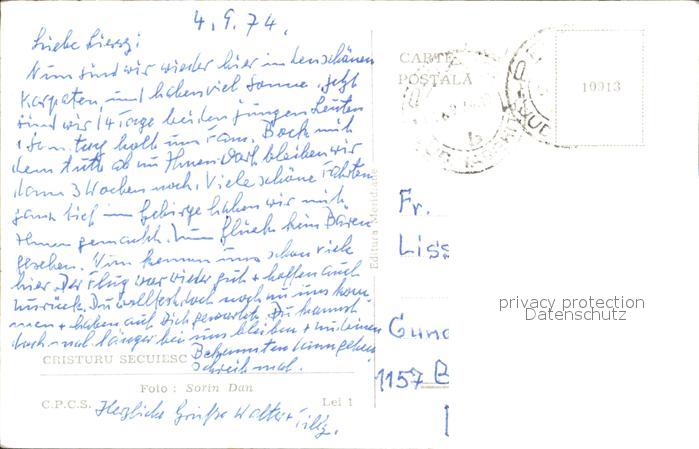 4.9.74.
Liebe
Nun sind wir wieder hier in den schönen
Karpaten, und haben viel Sonne. Jetzt
sind wir 14 Tage bei den jungen Leuten
holt uns Fam. Bock mit
dem Auto ab zu Ihnen. Dort bleiben wir
dann 3 Wochen noch. Viele schöne Fahrten
ganz tief im Gebirge haben wir mit
Ihnen gemacht. Zum Glück kein Bären
gesehen. Nun kennen uns schon viele
hier. Der Flug war wieder gut + hoffen auch
zurück. Du wolltest doch noch zu uns kom-
men + haben auf Dich gewartet. Du kannst
doch mal länger bei uns bleiben + zu deinen
Bekannten dann gehen.
Schreib mal.
Herzliche Grüße Walter +
CRISTURU SECUIESC
Foto : Sorin Dan
C.P.C.S. Lei 1
Editura Meridiane
CARTE
POȘTALĂ
10913
Fr.
Liss
1157 B
privacy protection
Datenschutz